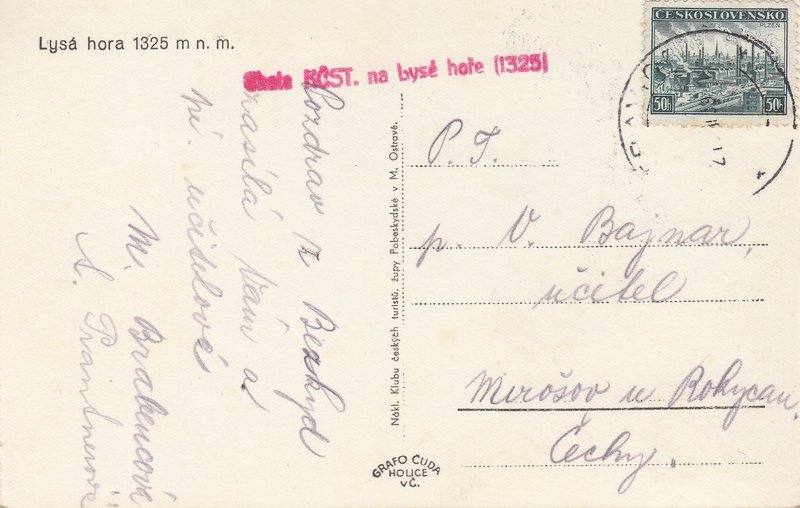 Lysá hora 1325 m n. m.
KČST. na Lysé hoře (1325)
Pozdrav z Beskyd
zasílá Vám a
pí. učitelové
M. Brabencová
A.
Nákl. Klubu českých turistů, župy Pobeskydské v M. Ostravě.
GRAFO ČUDA
HOLICE
v Č.
ČESKOSLOVENSKO
PLZEŇ
50h 50h
P. T.
p. V. Bajnar,
učitel
Mirošov u Rokycan.
Čechy.